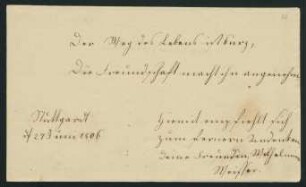 Der Weg des Lebens ist kurz,
Die Freundschaft macht ihn angenehm
Stuttgart
d 27 Juni 1806
Hiermit empfiehlt sich
zum fernern Andenken
Deine Freundin, Wilhelmine